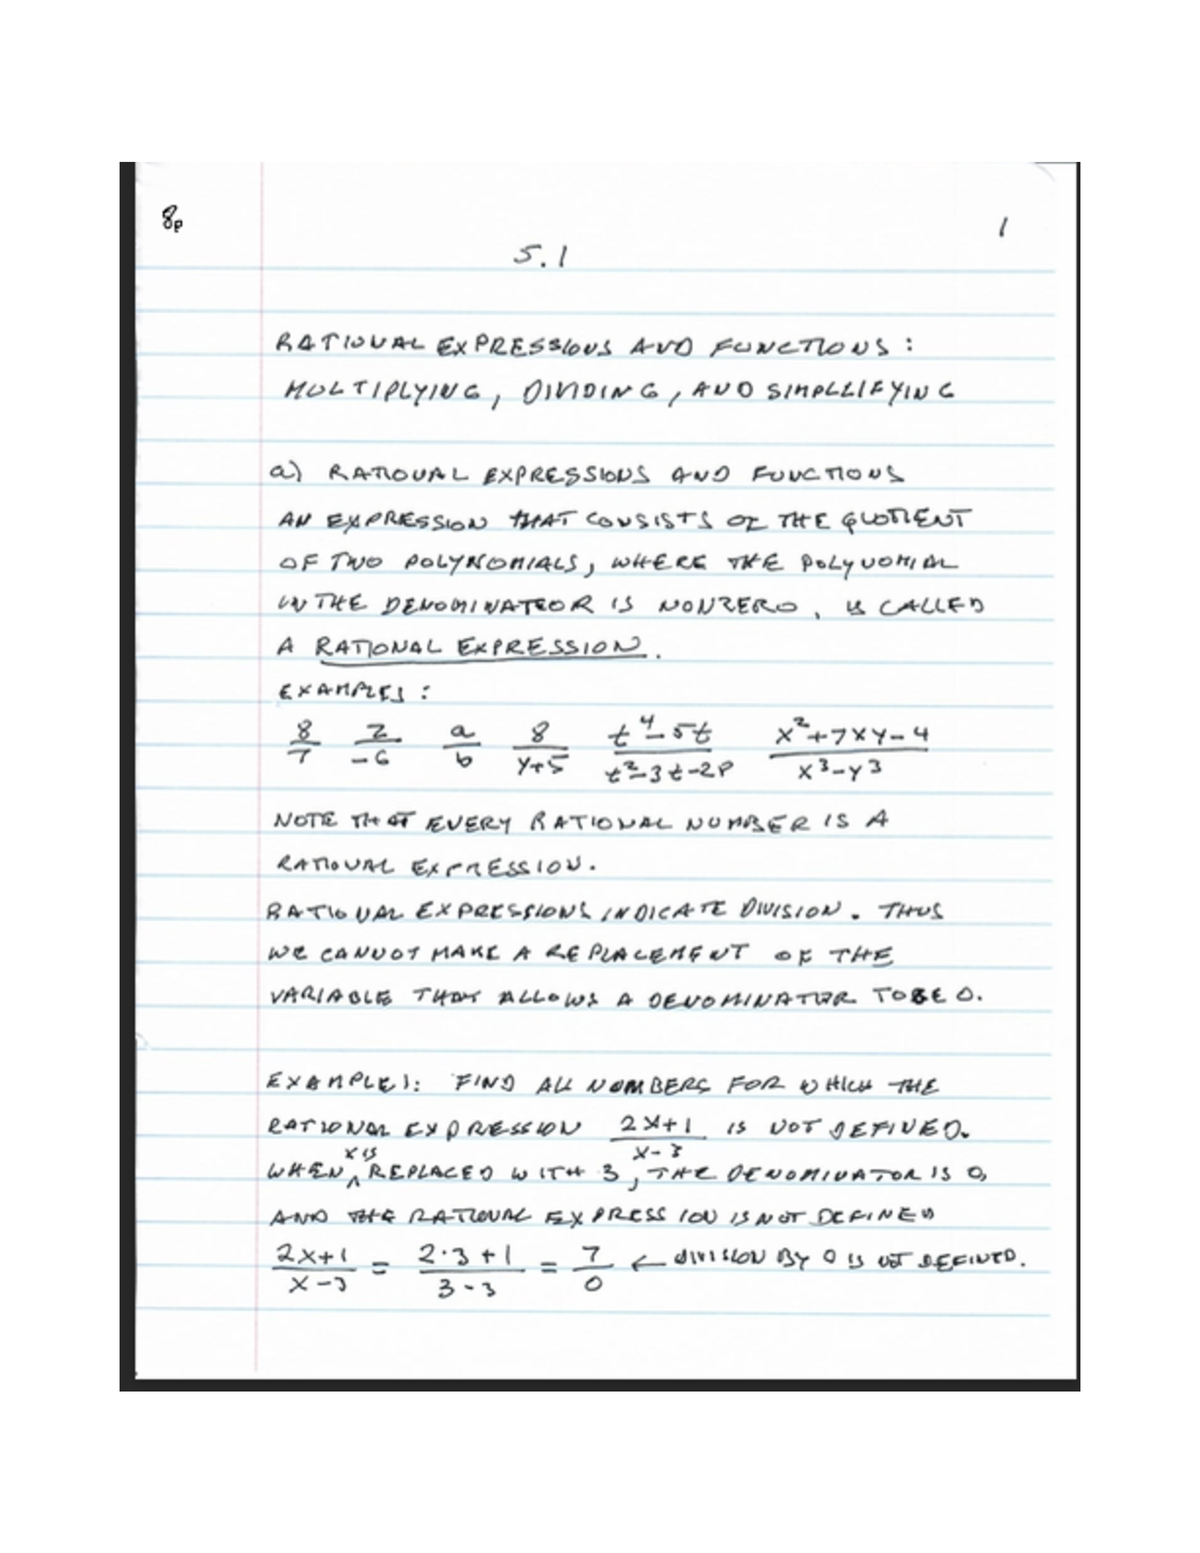 8p
1
5.1
RATIONAL EXPRESSIONS AND FUNCTIONS:
MULTIPLYING, DIVIDING, AND SIMPLLIFYING
a) RATIONAL EXPRESSIONS AND FUNCTIONS
AN EXPRESSION THAT CONSISTS OF THE QUOTIENT
OF TWO POLYNOMIALS, WHERE THE POLYNOMIAL
IN THE DENOMINATOR IS NONZERO, IS CALLED
A RATIONAL EXPRESSION.
EXAMPLES:
8/7 z/-6 a/b 8/(y+5) (t⁴-5t)/(t²-3t-28) (x²+7xy-4)/(x³-y³)
NOTE THAT EVERY RATIONAL NUMBER IS A
RATIONAL EXPRESSION.
RATIONAL EXPRESSIONS INDICATE DIVISION. THUS
WE CANNOT MAKE A REPLACEMENT OF THE
VARIABLE THAT ALLOWS A DENOMINATOR TO BE 0.
EXAMPLE 1: FIND ALL NUMBERS FOR WHICH THE
RATIONAL EXPRESSION (2x+1)/(x-3) IS NOT DEFINED.
WHEN x is REPLACED WITH 3, THE DENOMINATOR IS 0,
AND THE RATIONAL EXPRESSION IS NOT DEFINED
(2x+1)/(x-3) = (2·3+1)/(3-3) = 7/0 ← DIVISION BY 0 IS NOT DEFINED.